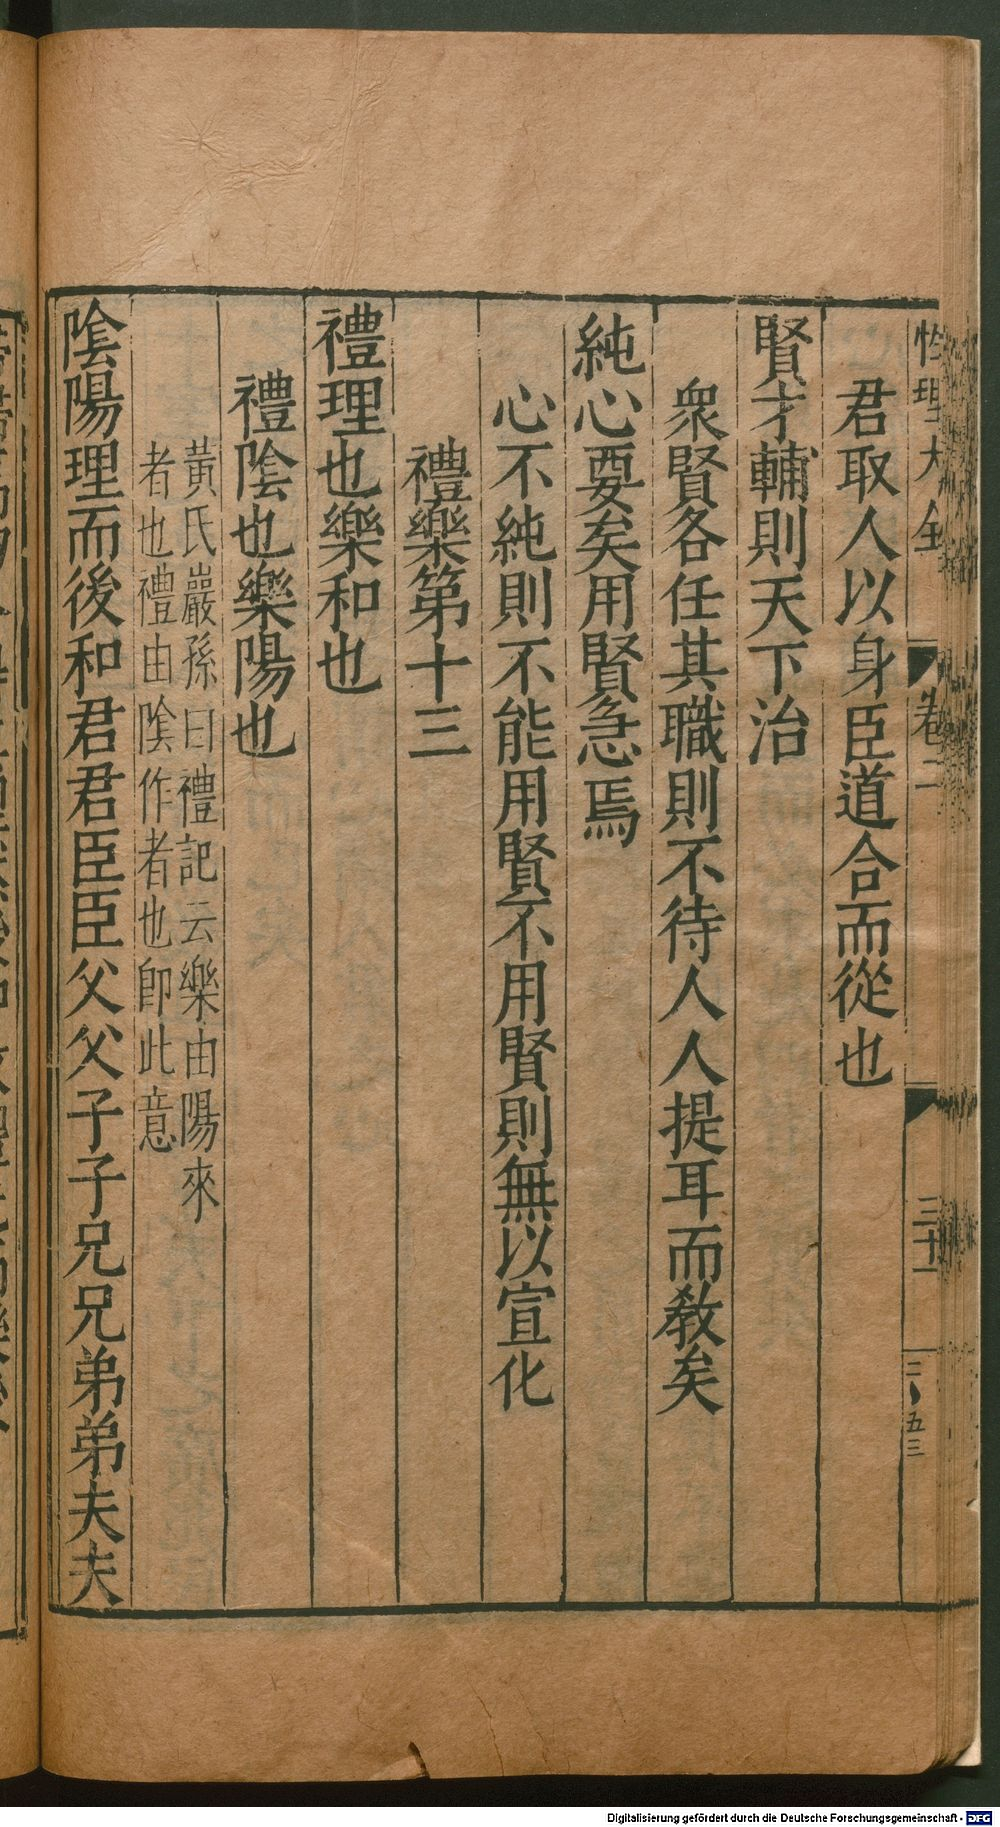 性理大全 卷二 三十一 二、五三
君取人以身臣道合而從也
賢才輔則天下治
衆賢各任其職則不待人人提耳而敎矣
純心要矣用賢急焉
心不純則不能用賢不用賢則無以宣化
禮樂第十三
禮理也樂和也
禮陰也樂陽也
黃氏巖孫曰禮記云樂由陽來
者也禮由陰作者也卽此意
陰陽理而後和君君臣臣父父子子兄兄弟弟夫夫
Digitalisierung gefördert durch die Deutsche Forschungsgemeinschaft - DFG